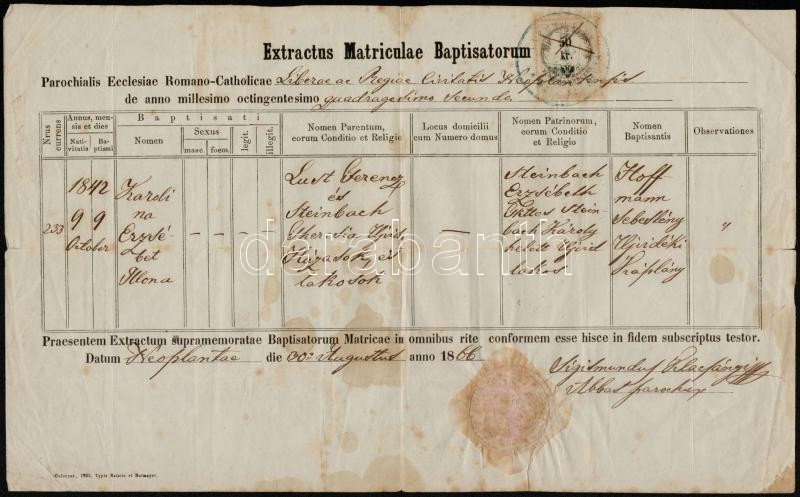 Extractus Matriculae Baptisatorum
50
kr.
Parochialis Ecclesiae Romano-Catholicae Liberae ac Regiae Civitatis
de anno millesimo octingentesimo quadragesimo secundo
Nrus currens
Annus, mensis et dies
Nativitatis
Baptismi
Baptisati
Nomen
Sexus
masc.
foem.
legit.
illegit.
Nomen Parentum, eorum Conditio et Religio
Locus domicilii cum Numero domus
Nomen Patrinorum, eorum Conditio et Religio
Nomen Baptisantis
Observationes
233
1842
9 9
October
Karoli
na
Erzsé
bet
Ilona
– – – –
Lust Ferencz
és
Steinbach
Theresia Ujvid
Házasok, és
Lakosok
—
Steinbach
Erzsébeth
Stein
bach Károly
Ujvid
lakos
Hoff
mann
Sebestény
Ujvidéki
Káplány
"
Praesentem Extractum supramemoratae Baptisatorum Matricae in omnibus rite conformem esse hisce in fidem subscriptus testor.
Datum Neoplantae die 30a Augustus anno 1866
Sigismundus
Abbas parochus
darabanth
Colocae, 1865. Typis Malatin et Holmeyer.